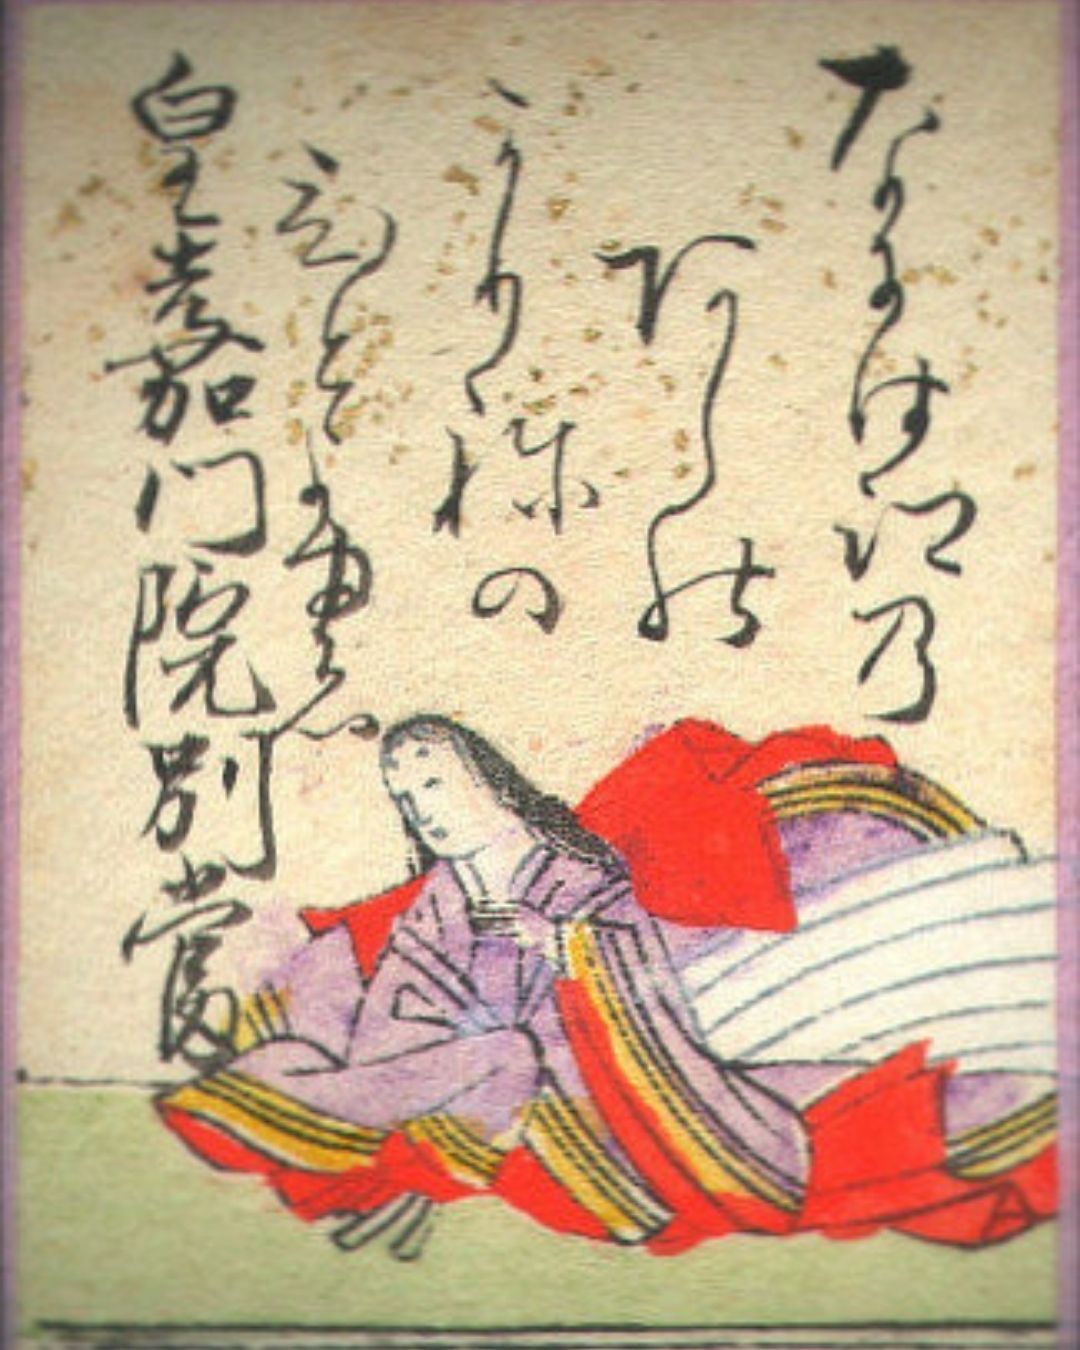 なには江の
あしの
かりねの
ひとよゆゑ
皇嘉門院別當